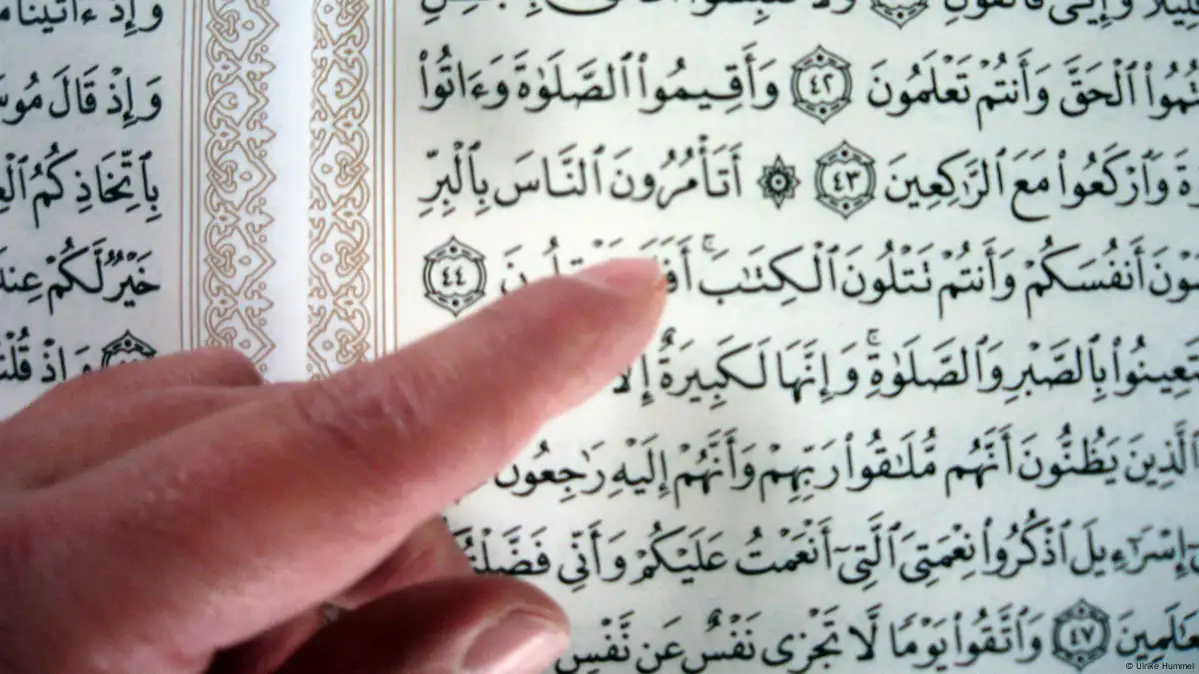 قَلِيلًا وَإِيَّـٰىَ فَٱتَّقُونِ
تُمُوا۟ ٱلْحَقَّ وَأَنتُمْ تَعْلَمُونَ ٤٢ وَأَقِيمُوا۟ ٱلصَّلَوٰةَ وَءَاتُوا۟
ةَ وَٱرْكَعُوا۟ مَعَ ٱلرَّٰكِعِينَ ٤٣ ۞ أَتَأْمُرُونَ ٱلنَّاسَ بِٱلْبِرِّ
ـوْنَ أَنفُسَكُمْ وَأَنتُمْ تَتْلُونَ ٱلْكِتَـٰبَ ۚ ٤٤
ـتَعِينُوا۟ بِٱلصَّبْرِ وَٱلصَّلَوٰةِ ۚ وَإِنَّهَا لَكَبِيرَةٌ إِلَّا
ٱلَّذِينَ يَظُنُّونَ أَنَّهُم مُّلَـٰقُوا۟ رَبِّهِمْ وَأَنَّهُمْ إِلَيْهِ رَٰجِعُونَ
ـٰٓ إِسْرَٰٓءِيلَ ٱذْكُرُوا۟ نِعْمَتِىَ ٱلَّتِىٓ أَنْعَمْتُ عَلَيْكُمْ وَأَنِّى فَضَّلْتُ
ـعَـٰلَمِينَ ٤٧ وَٱتَّقُوا۟ يَوْمًا لَّا تَجْزِى نَفْسٌ عَن نَّفْسٍ
وَإِذْ ءَاتَيْنَا
وَإِذْ قَالَ مُوسَـ
بِٱتِّخَاذِكُمُ ٱلْعِـ
خَيْرٌ لَّكُمْ عِندَ
وَإِذْ قُلْتُـ
© Ulrike Hummel